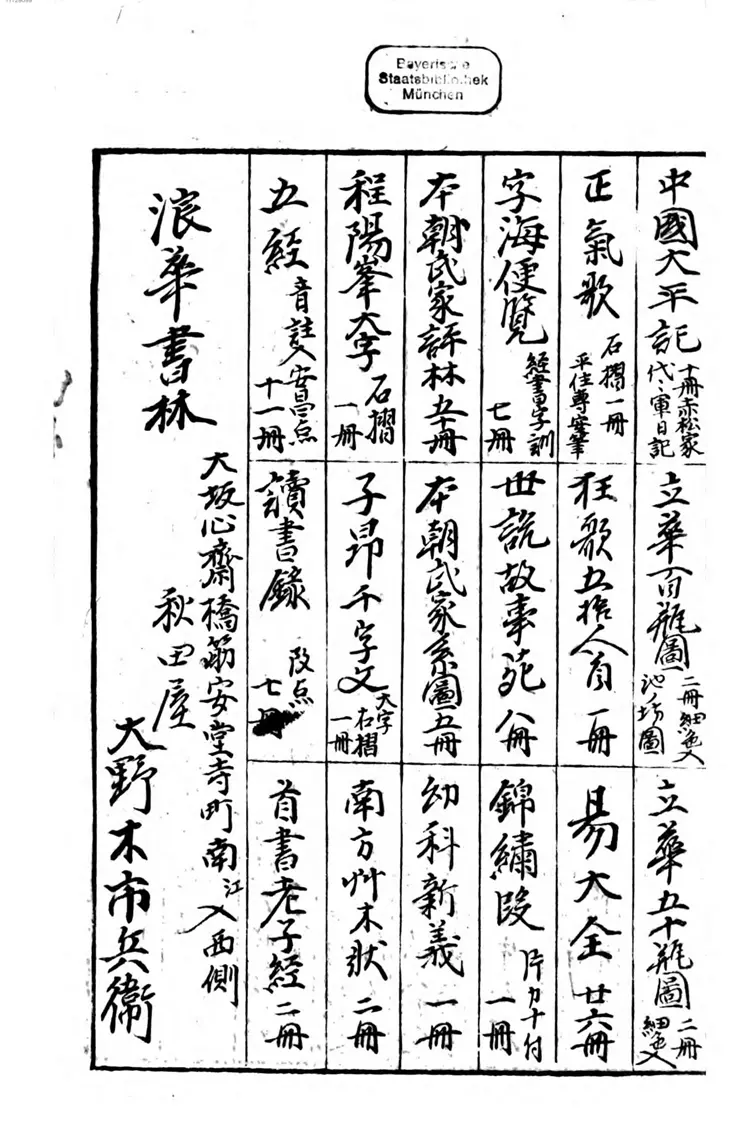 Bayerische
Staatsbibliothek
München
中國太平記 十冊赤松家
代々軍日記
立華百瓶圖 二冊細色入
池ノ坊圖
立華五十瓶圖 二冊
細色入
正氣歌 石摺一冊
平住専安筆
狂歌五拾人首 一冊
易大全 廿六冊
字海便覽 経書字訓
七冊
世説故事苑 八冊
錦繍段 片カナ付
一冊
本朝氏家評林 五十冊
本朝武家系圖 五冊
幼科新義 一冊
程陽峯大字 石摺
一冊
子昂千字文 大字
石摺
一冊
南方艸木状 二冊
五経 音註入 安昌点
十一冊
讀書録 改点
七冊
首書老子経 二冊
浪華書林
大坂心齋橋筋安堂寺町南江入西側
秋田屋
大野木市兵衛